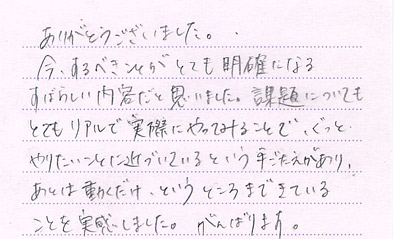 ありがとうございました。
今、するべきことがとても明確になる
すばらしい内容だと思いました。課題についても
とてもリアルで実際にやってみることで、ぐっと
やりたいことに近づいているという手ごたえがあり、
あとは動くだけ、というところまできている
ことを実感しました。がんばります。